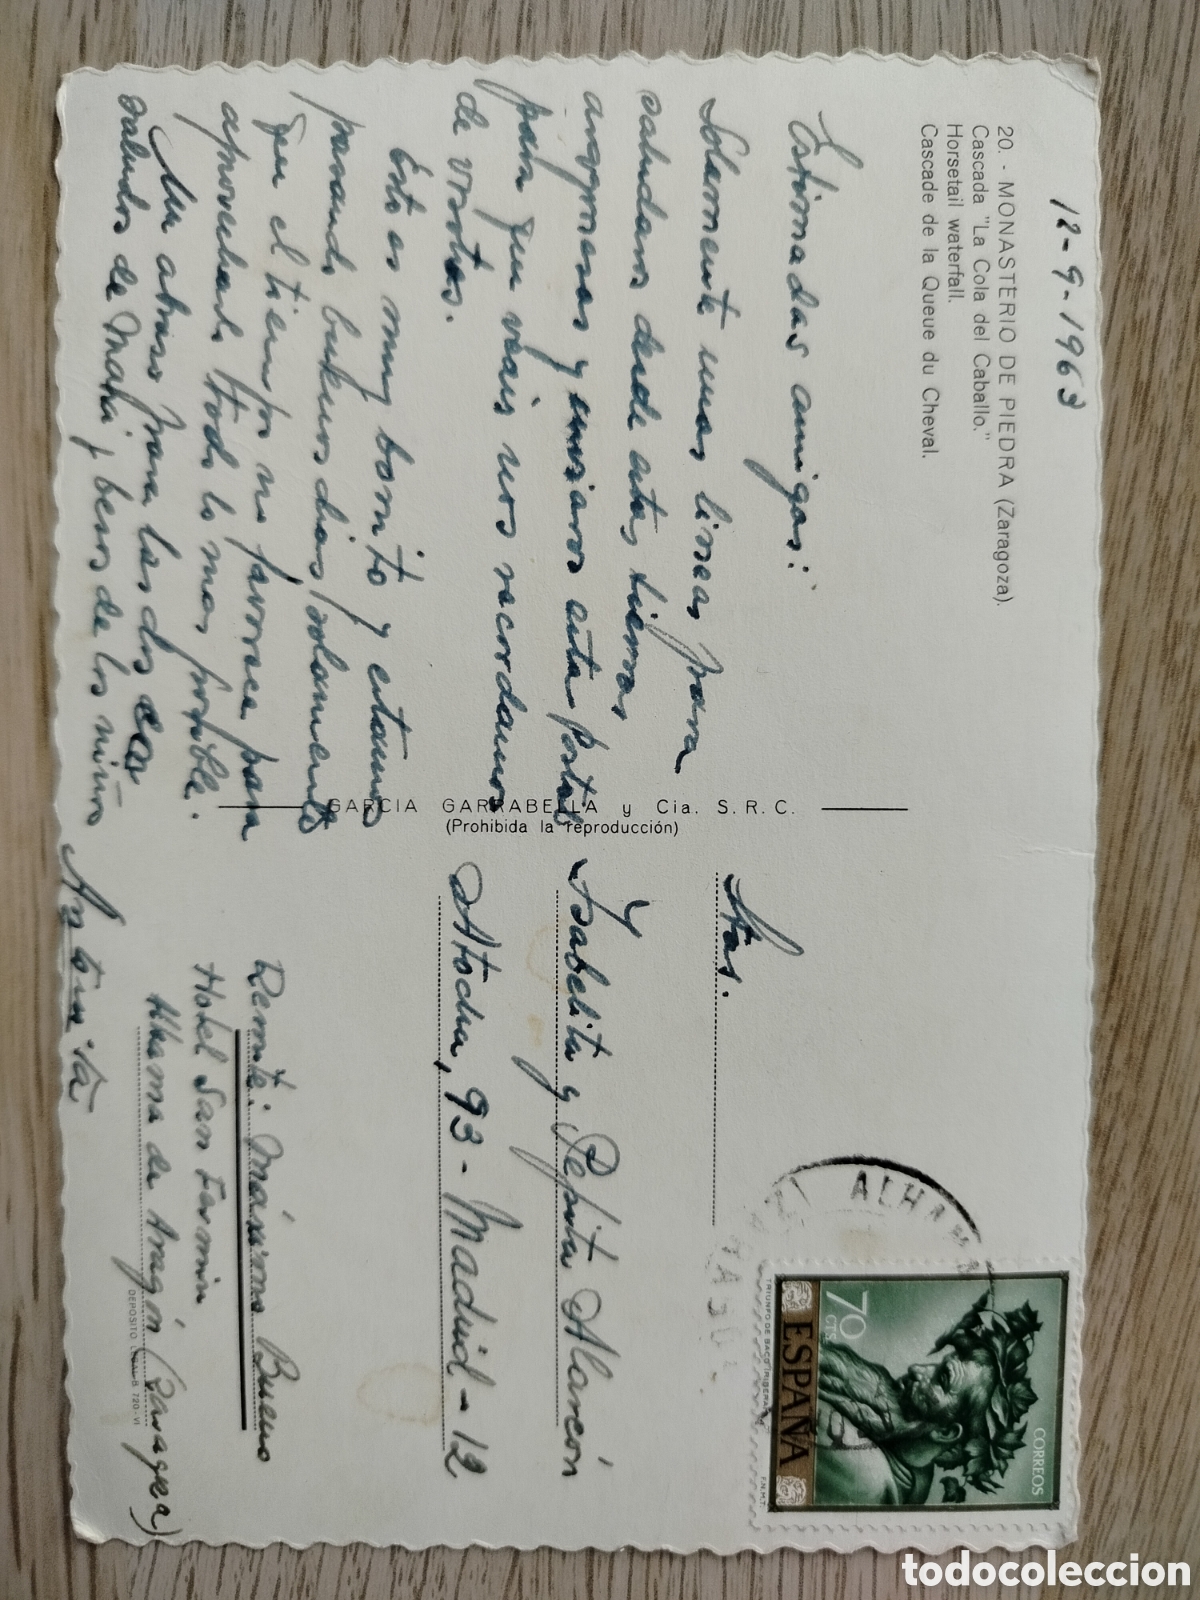 12-9-1963
20. - MONASTERIO DE PIEDRA (Zaragoza).
Cascada "La Cola del Caballo."
Horsetail waterfall.
Cascade de la Queue du Cheval.
Estimadas amigas:
Solamente unas lineas para
saludaros desde estas tierras
aragonesas y enviaros esta postal
para que veais nos recordamos
de vosotras.
Esto es muy bonito y estamos
pasando buenos dias, solamente
que el tiempo no favorece para
aprovecharlo todo lo mas posible.
Un abrazo para las dos con
saludos de Mari y besos de los niños
Antonia
GARCIA GARRABELLA y Cia. S.R.C.
(Prohibida la reproducción)
Stas.
Isabelita y Pepita Alarcón
Atocha, 93 - Madrid - 12
Remite: Máximo Bueno
Hotel San Fermin
Alhama de Aragón (Zaragoza)
DEPOSITO LEGAL B. 720-VI
ALHAMA
CORREOS
70
CTS.
ESPAÑA
TRIUNFO DE BACO (RIBERA)
F.N.M.T.
todocoleccion